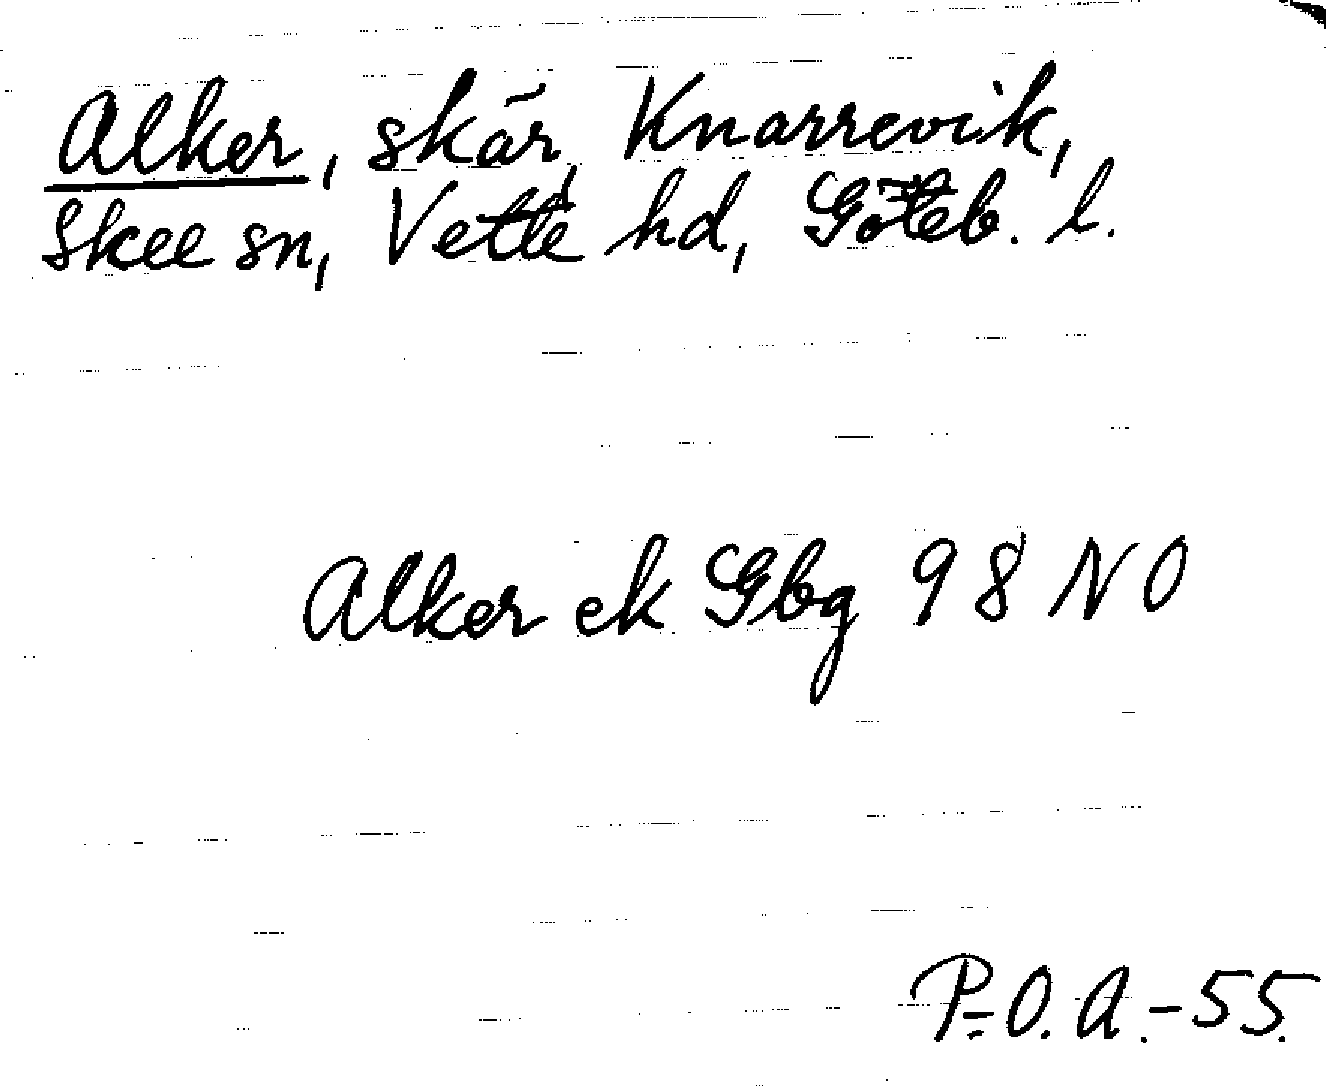 Alker, skär, Knarrevik,
Skee sn, Vette hd, Göteb. l.
Alker ek Gbg 98 NO
P.-O. A.-55.